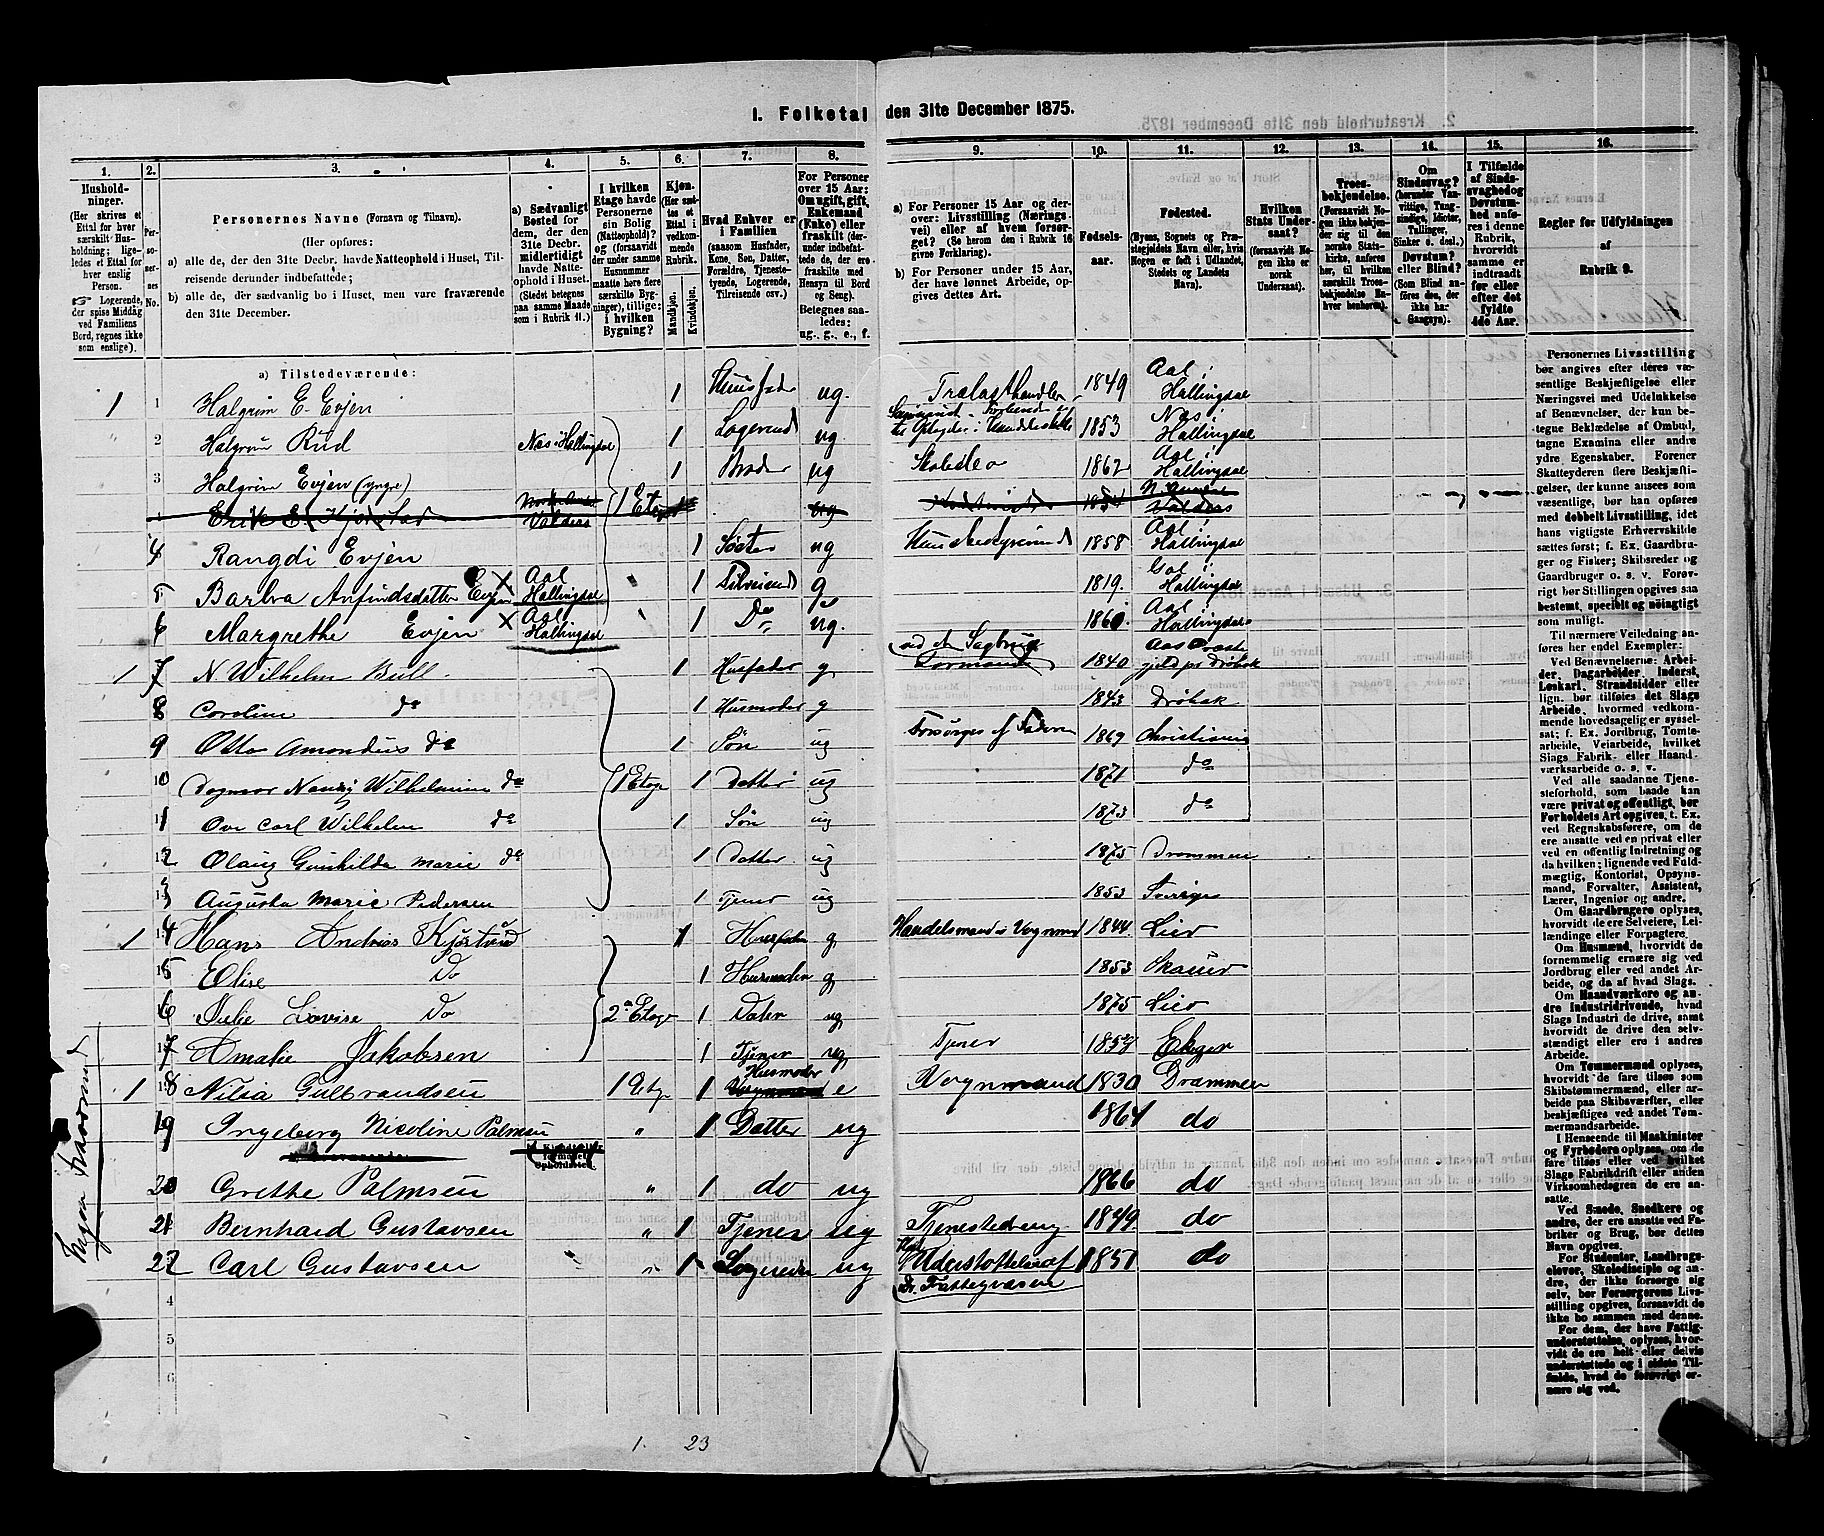 1. Folketal den 31te December 1875.
2. Kreaturhold den 31te December 1875.
1. 2. 3. 4. 5. 6. 7. 8. 9. 10. 11. 12. 13. 14. 15. 16.
Husholdninger.
(Her skrives et Ettal for hver særskilt Husholdning; ligeledes et Ettal for hver enslig Person.
☞ Logerende, der spise Middag ved Familiens Bord, regnes ikke som enslige.)
Personernes No.
Personernes Navne (Fornavn og Tilnavn).
(Her opføres:
a) alle de, der den 31te Decbr. havde Natteophold i Huset, Tilreisende derunder indbefattede;
b) alle de, der sædvanlig bo i Huset, men vare fraværende den 31te December.
a) Sædvanligt Bosted for dem, der den 31te Decbr. midlertidigt havde Natteophold i Huset.
(Stedet betegnes paa samme Maade som i Rubrik 11.)
I hvilken Etage havde Personerne sin Bolig (Natteophold)? og (forsaavidt der under samme Husnummer maatte høre flere særskilte Bygninger), tillige: i hvilken Bygning?
Kjøn.
(Her sættes et Ettal i vedkommende Rubrik.
Mandkjøn. Kvindekjøn.
Hvad Enhver er i Familien
(saasom Husfader, Kone, Søn, Datter, Forældre, Tjenestetyende, Logerende, Tilreisende osv.)
For Personer over 15 Aar: Om ugift, gift, Enkemand (Enke) eller fraskilt (derunder indbefattede de, der ere fraskilte med Hensyn til Bord og Seng).
Betegnes saaledes: ug., g., e., f.
a) For Personer 15 Aar og derover: Livsstilling (Næringsvei) eller af hvem forsørget? (Se herom den i Rubrik 16 givne Forklaring).
b) For Personer under 15 Aar, der have lønnet Arbeide, opgives dettes Art.
Fødselsaar.
Fødested.
(Byens, Sognets og Præstegjeldets Navn eller, hvis Nogen er født i Udlandet, Stedets og Landets Navn).
Hvilken Stats Undersaat?
(forsaavidt Nogen ikke er norsk Undersaat).
Troesbekjendelse.
(Forsaavidt Nogen ikke bekjender sig til den norske Statskirke, anføres her, til hvilken særskilt Troesbekjendelse Enhver henhører).
Om Sindssvag? (herunder Vanvittige, Tungsindige, Idioter, Tullinger, Sinker o. desl.) Døvstum? eller Blind? (Som Blind anføres den, der ikke har Gangsyn).
I Tilfælde af Sindssvaghed og Døvstumhed anføres i denne Rubrik, hvorvidt samme er indtraadt før eller efter det fyldte 4de Aar.
Regler for Udfyldningen af Rubrik 9.
a) Tilstedeværende:
1 1 Halgrim E. Evjen 1 Huusfader ug. Trælasthandler 1849 Aal i Hallingdal
2 Halgrim Rud Nas i Hallingdal 1 Logerende ug 1853 Nas i Hallingdal
3 Halgrim Evjen (yngre) 1 Broder ug 1862 Aal i Hallingdal
Erik E. Kjørstad Valders 1 Etage ug 1854 Valders
4 Rangdi Evjen 1 Søster ug Huusbestyrerinde 1858 Aal i Hallingdal
5 Barbra Anfindsdatter Evjen X Aal Hallingdal " 1 Tilreisende g 1819. Aal i Hallingdal
6 Margrethe Evjen X Aal Hallingdal " 1 Do ug. 1860 Aal i Hallingdal
1 7 N Wilhelm Bull 1 Husfader g ved et Sagbrug Formand 1840 Aas Præstegjeld pr Drøbak
8 Caroline do 1 Husmoder g 1843 Drøbak
9 Otto Amandus do 1 Søn ug Forsørges af Faderen 1869 Christiania
10 Dagmar Nanny Wilhelmine do 1 Etage 1 Datter ug 1871 do
11 Ove Carl Wilhelm do 1 Søn ug 1873 do
12 Olaug Gunhilda Marie do 1 Datter ug 1875 Drammen
13 Augusta Marie Pedersen 1 Tjener ug 1853 Sverige
1 14 Hans Andreas Kjøstad 1 Husfader g Handelsmand & Vognmd 1844. Lier
15 Elise Do 1 Husmoder g 1853 Skouer
16 Julie Lovise Do 2n Etage 1 Dater ug 1875 Lier
17 Amalie Jakobsen 1 Tjener ug Tjener 1858 Eker
1 18 Nilia Gulbrandsen 1 Etg. 1 Husmoder e Vognmand 1830 Drammen
19 Ingeborg Nicoline Palmsen " 1 Datter ug 1864 do
20 Grethe Palmsen " 1 do ug 1866 do
21 Bernhard Gustavsen " 1 Tjener ug Tjenestedreng 1849 do
22 Carl Gustavsen " 1 Logerende ug Understøttes af Fattigvæsen 1851 do
4
5
6
Ingen fraværende
1. 23
Personernes Livsstilling bør angives efter deres væsentlige Beskjæftigelse eller Næringsvei med Udelukkelse af Benævnelser, der kun betegne Beklædelse af Ombud, tagne Examina eller andre ydre Egenskaber. Forener Skatteyderen flere Beskjæftigelser, der kunne ansees som væsentlige, bør han opføres med dobbelt Livsstilling, idet hans vigtigste Erhvervskilde sættes først; f. Ex. Gaardbruger og Fisker; Skibsreder og Gaardbruger o. s. v. Forøvrigt bør Stillingen opgives saa bestemt, specielt og nøiagtigt som muligt.
Til nærmere Veiledning anføres her endel Exempler:
Ved Benævnelserne: Arbeider, Dagarbeider, Inderst, Løskarl, Strandsidder eller lign. bør tilføies det Slags Arbeide, hvormed vedkommende hovedsagelig er sysselsat; f. Ex. Jordbrug, Tomtearbeide, Veiarbeide, hvilket Slags Fabrik- eller Haandværksarbeide o. s. v.
Ved alle saadanne Tjenesteforhold, som baade kan være privat og offentligt, bør Forholdets Art opgives, t. Ex. ved Regnskabsførere, om de ere ansatte ved en privat eller ved en offentlig Indretning og da hvilken; lignende ved Fuldmægtig, Kontorist, Opsynsmand, Forvalter, Assistent, Lærer, Ingeniør og andre.
Om Gaardbrugere oplyses, hvorvidt de ere Selveiere, Leilændinge eller Forpagtere.
Om Husmænd, hvorvidt de fornemmelig ernære sig ved Jordbrug eller ved andet Arbeide, og da af hvad Slags.
Om Haandværkere og andre Industridrivende, hvad Slags Industri de drive, samt hvorvidt de drive den selvstændigt eller ere i andres Arbeide.
Om Tømmermænd oplyses, hvorvidt de fare tilsøs som Skibstømmermænd, eller arbeide paa Skibsværfter, eller beskjæftiges ved andet Tømmermandsarbeide.
I Henseende til Maskinister og Fyrbødere oplyses, om de fare tilsøs eller ved hvilket Slags Fabrikdrift eller anden Virksomhedsgren de ere ansatte.
Ved Smede, Snedkere og andre, der ere ansatte ved Fabriker og Brug, bør dettes Navn opgives.
For Studenter, Landbrugselever, Skoledisciple og andre, der ikke forsørge sig selv, bør Forsørgerens Livsstilling opgives, forsaavidt de ikke bo sammen med denne.
For dem, der have Fattigunderstøttelse, oplyses, hvorvidt de ere helt eller delvis understøttede og i sidste Tilfælde, hvad de forøvrigt ernære sig ved.